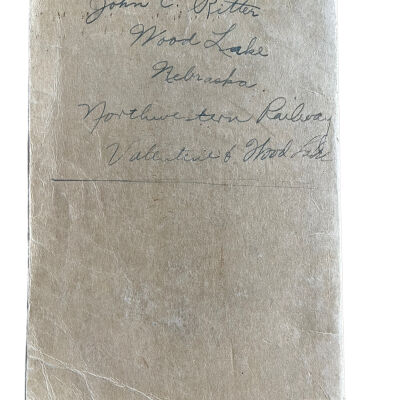 John C. Ritter
Wood Lake
Nebraska.
Northwestern Railway
Valentine & Wood Lake